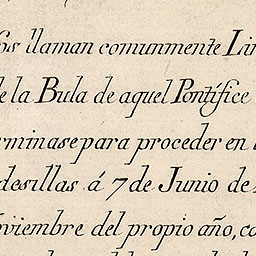 os llaman comunmente Lin
e la Bula de aquel Pontífice
rminase para proceder en l
desillas á 7 de Junio de
oviembre del propio año, co